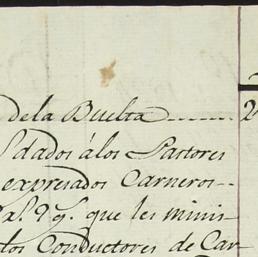 de la Buelta
dados á los Pastores
expresados Carneros
q.e les minis-
los Conductores de Car-